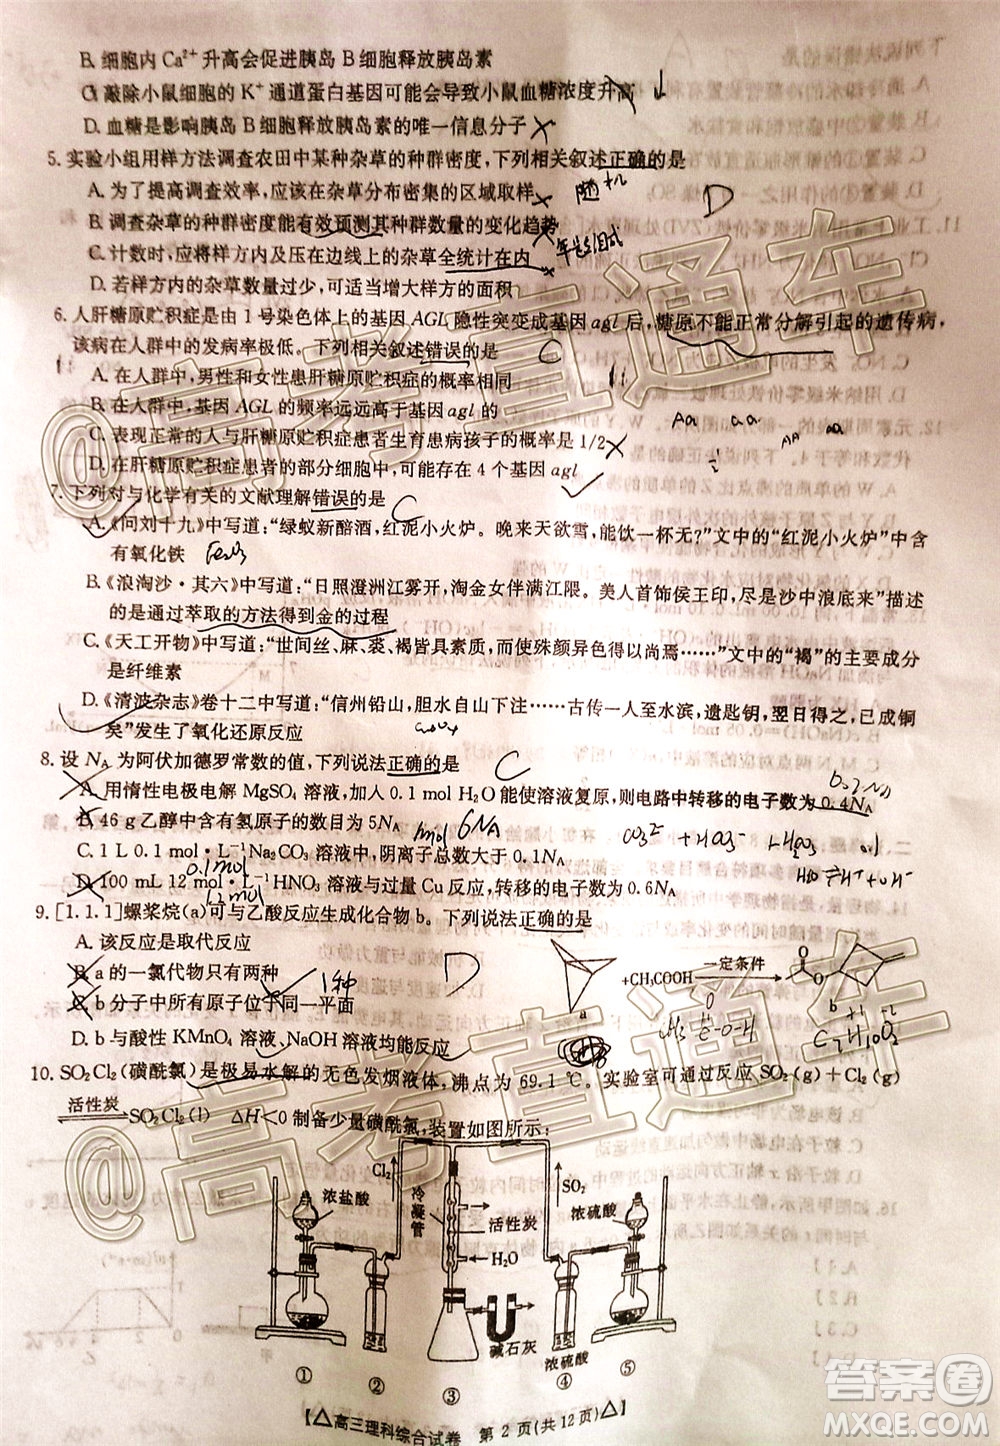 B. 细胞内 Ca²⁺ 升高会促进胰岛 B 细胞释放胰岛素
C. 敲除小鼠细胞的 K⁺ 通道蛋白基因可能会导致小鼠血糖浓度升高
D. 血糖是影响胰岛 B 细胞释放胰岛素的唯一信息分子
5. 实验小组用样方法调查农田中某种杂草的种群密度,下列相关叙述正确的是
A. 为了提高调查效率,应该在杂草分布密集的区域取样
D
B. 调查杂草的种群密度能有效预测其种群数量的变化趋势
C. 计数时,应将样方内及压在边线上的杂草全统计在内
D. 若样方内的杂草数量过少,可适当增大样方的面积
6. 人肝糖原贮积症是由 1 号染色体上的基因 AGL 隐性突变成基因 agl 后,糖原不能正常分解引起的遗传病,
该病在人群中的发病率极低。下列相关叙述错误的是
C
A. 在人群中,男性和女性患肝糖原贮积症的概率相同
B. 在人群中,基因 AGL 的频率远远高于基因 agl 的
Aa aa
AA aa
C. 表现正常的人与肝糖原贮积症患者生育患病孩子的概率是 1/2
D. 在肝糖原贮积症患者的部分细胞中,可能存在 4 个基因 agl
7. 下列对与化学有关的文献理解错误的是
C
A.《问刘十九》中写道:“绿蚁新醅酒,红泥小火炉。晚来天欲雪,能饮一杯无?”文中的“红泥小火炉”中含
有氧化铁
Fe₂O₃
B.《浪淘沙·其六》中写道:“日照澄洲江雾开,淘金女伴满江隈。美人首饰侯王印,尽是沙中浪底来”描述
的是通过萃取的方法得到金的过程
C.《天工开物》中写道:“世间丝、麻、裘、褐皆具素质,而使殊颜异色得以尚焉……”文中的“褐”的主要成分
是纤维素
D.《清波杂志》卷十二中写道:“信州铅山,胆水自山下注……古传一人至水滨,遗匙钥,翌日得之,已成铜
矣”发生了氧化还原反应
CuSO₄
8. 设 NA 为阿伏加德罗常数的值,下列说法正确的是
C
A. 用惰性电极电解 MgSO₄ 溶液,加入 0.1 mol H₂O 能使溶液复原,则电路中转移的电子数为 0.4NA
0.2NA
B. 46 g 乙醇中含有氢原子的数目为 5NA
1mol 6NA
C. 1 L 0.1 mol·L⁻¹ Na₂CO₃ 溶液中,阴离子总数大于 0.1NA
0.1mol
D. 100 mL 12 mol·L⁻¹ HNO₃ 溶液与过量 Cu 反应,转移的电子数为 0.6NA
9. [1.1.1]螺桨烷(a)可与乙酸反应生成化合物 b。下列说法正确的是
A. 该反应是取代反应
B. a 的一氯代物只有两种
1种
D
C. b 分子中所有原子位于同一平面
D. b 与酸性 KMnO₄ 溶液、NaOH 溶液均能反应
+CH₃COOH
一定条件
a
b
C₇H₁₀O₂
10. SO₂Cl₂(磺酰氯)是极易水解的无色发烟液体,沸点为 69.1 ℃。实验室可通过反应 SO₂(g)+Cl₂(g)
活性炭
SO₂Cl₂(l) ΔH<0 制备少量磺酰氯,装置如图所示:
浓盐酸
Cl₂
冷凝管
活性炭
H₂O
SO₂
浓硫酸
碱石灰
浓硫酸
① ② ③ ④ ⑤
【△高三理科综合试卷 第 2 页(共 12 页)△】
@高考直通车
@高考直通车
答案圈
MXQE.COM